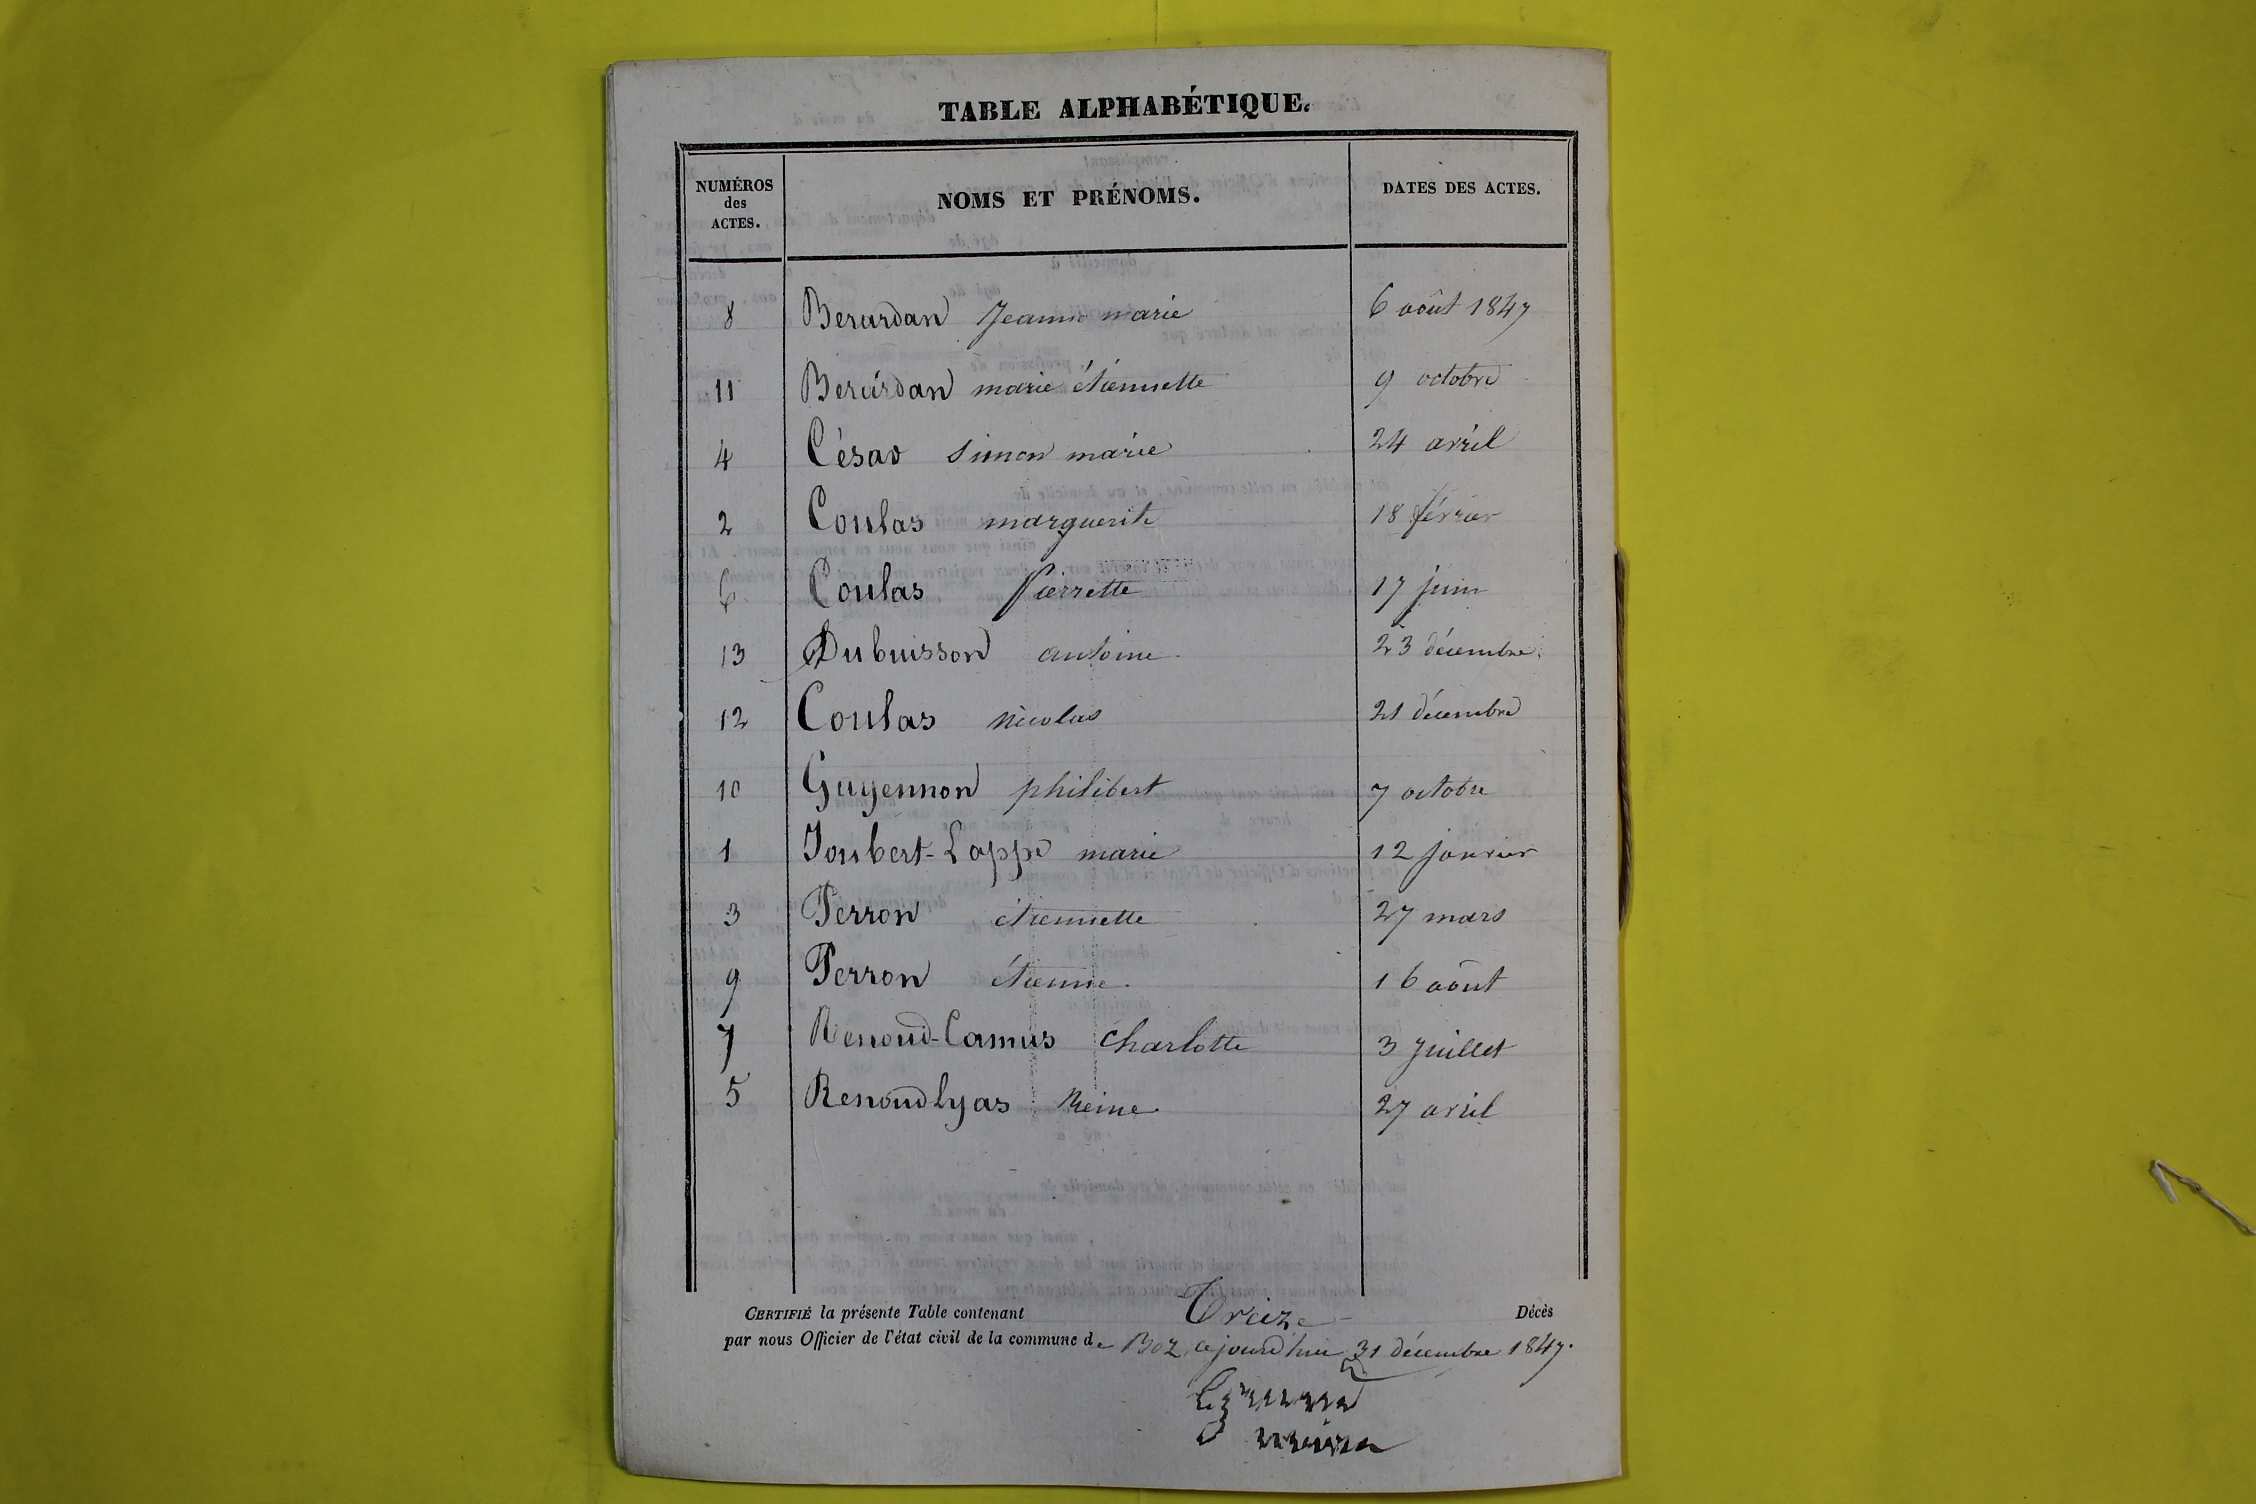 TABLE ALPHABÉTIQUE.
NUMÉROS des ACTES. NOMS ET PRÉNOMS. DATES DES ACTES.
8 Berardan Jeanne marie 6 août 1847
11 Berardan marie étiennette 9 octobre
4 César simon marie 24 avril
2 Coulas marguerite 18 février
6 Coulas Pierrette 17 juin
13 Dubuisson antoine 23 décembre
12 Coulas nicolas 21 décembre
10 Guyennon philibert 7 octobre
1 Joubert-Loppe marie 12 janvier
3 Perron étiennette 27 mars
9 Perron étienne 16 août
7 Renoud-Camus Charlotte 3 juillet
5 Renoud lyas Reine 27 avril
CERTIFIÉ la présente Table contenant Treize Décès
par nous Officier de l'état civil de la commune de Boz, cejourd'hui 31 décembre 1847.